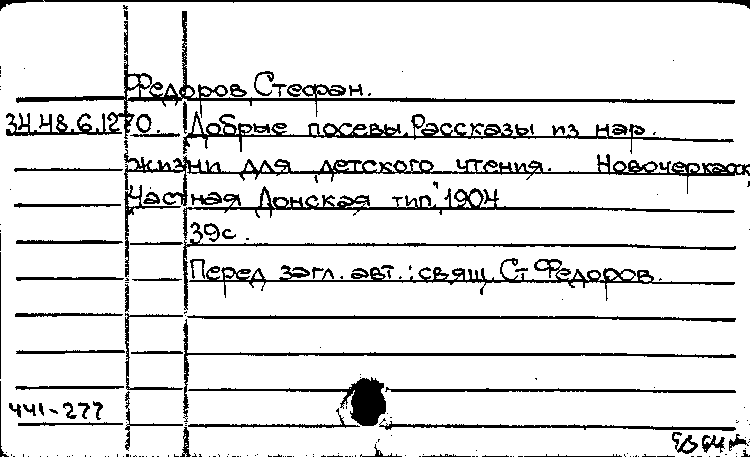 Федоров, Стефан.
34.48.6.1270. Добрые посевы. Рассказы из нар.
жизни для детского чтения. Новочеркасск,
"Частная Донская тип.", 1904
39с.
Перед загл. авт.: свящ. Ст. Федоров.
441-277